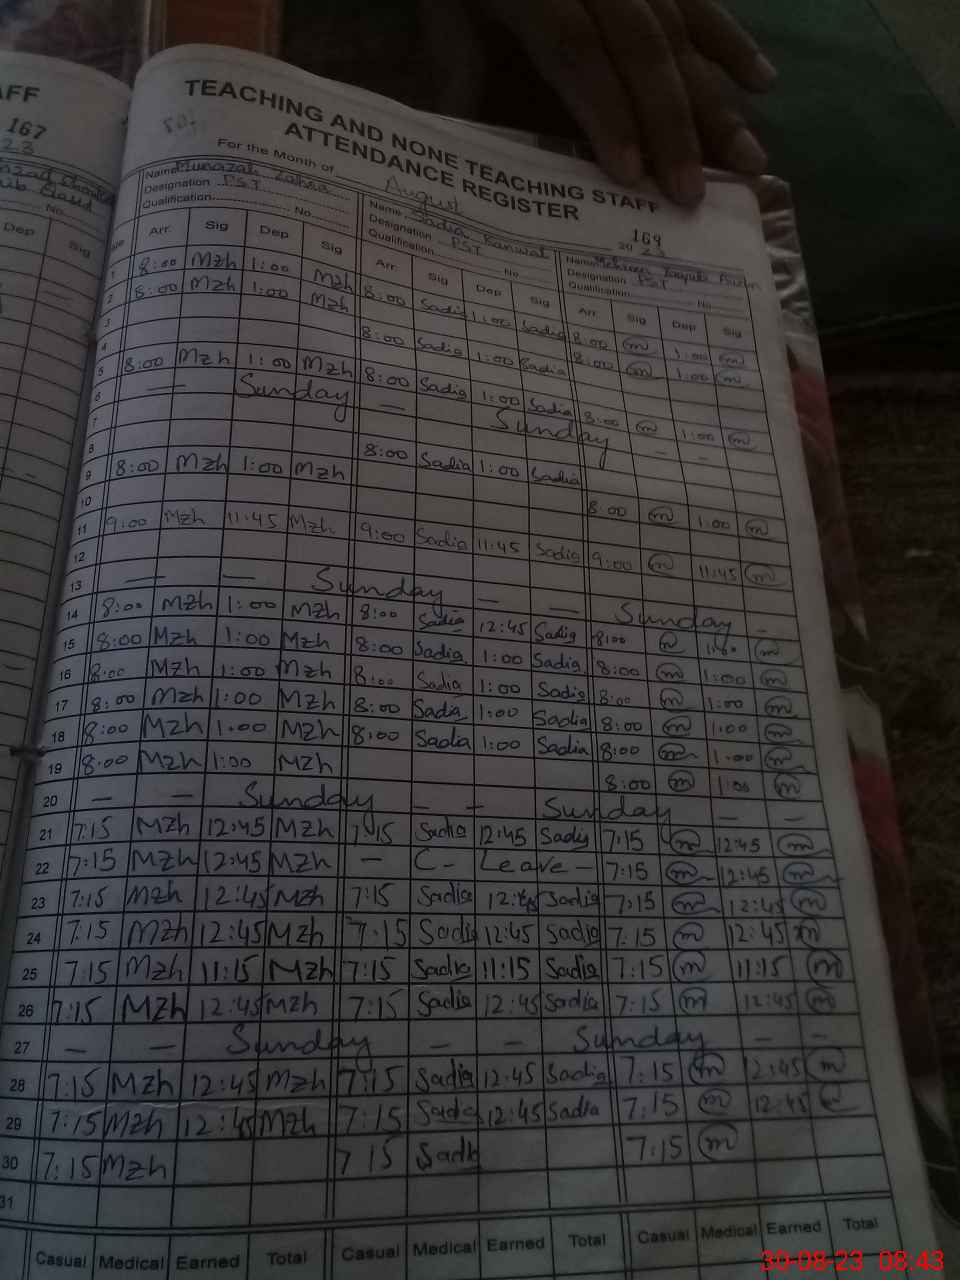 AFF
167
23
No
Dep
Sig
TEACHING AND NONE TEACHING STAFF
ATTENDANCE REGISTER
For the Month of August 20 23
169
Name Munazah Zahra
Designation PST
Qualification No
Name Sadia Kanwal
Designation PST
Qualification No
Name
Designation PST
Qualification No
Arr. Sig Dep Sig Arr Sig Dep Sig Arr Sig Dep Sig
1 8:00 Mzh 1:00 Mzh 8:00 Sadia 1:00 Sadia 8:00 m 1:00 m
2 8:00 Mzh 1:00 Mzh 8:00 Sadia 1:00 Sadia 8:00 m 1:00 m
3
4
5 8:00 Mzh 1:00 Mzh 8:00 Sadia 1:00 Sadia 8:00 m 1:00 m
6 — Sunday — Sunday - -
7
8 8:00 Sadia 1:00 Sadia
9 8:00 Mzh 1:00 Mzh 8:00 m 1:00 m
10
11 9:00 Mzh 11:45 Mzh 9:00 Sadia 11:45 Sadia 9:00 m 11:45 m
12
13 — — Sunday — — Sunday -
14 8:00 Mzh 1:00 Mzh 8:00 Sadia 12:45 Sadia 8:00 m 1:00 m
15 8:00 Mzh 1:00 Mzh 8:00 Sadia 1:00 Sadia 8:00 m 1:00 m
16 8:00 Mzh 1:00 Mzh 8:00 Sadia 1:00 Sadia 8:00 m 1:00 m
17 8:00 Mzh 1:00 Mzh 8:00 Sadia 1:00 Sadia 8:00 m 1:00 m
18 8:00 Mzh 1:00 Mzh 8:00 Sadia 1:00 Sadia 8:00 m 1:00 m
19 8:00 Mzh 1:00 Mzh 8:00 m 1:00 m
20 — — Sunday — — Sunday — —
21 7:15 Mzh 12:45 Mzh 7:15 Sadia 12:45 Sadia 7:15 m 12:45 m
22 7:15 Mzh 12:45 Mzh — C- Leave - 7:15 m 12:45 m
23 7:15 Mzh 12:45 Mzh 7:15 Sadia 12:45 Sadia 7:15 m 12:45 m
24 7:15 Mzh 12:45 Mzh 7:15 Sadia 12:45 Sadia 7:15 m 12:45 m
25 7:15 Mzh 11:15 Mzh 7:15 Sadia 11:15 Sadia 7:15 m 11:15 m
26 7:15 Mzh 12:45 Mzh 7:15 Sadia 12:45 Sadia 7:15 m 12:45 m
27 — — Sunday — — Sunday — —
28 7:15 Mzh 12:45 Mzh 7:15 Sadia 12:45 Sadia 7:15 m 12:45 m
29 7:15 Mzh 12:45 Mzh 7:15 Sadia 12:45 Sadia 7:15 m 12:45 m
30 7:15 Mzh 7 15 Sadia 7:15 m
31
Casual Medical Earned Total Casual Medical Earned Total Casual Medical Earned Total
30-08-23 08:43